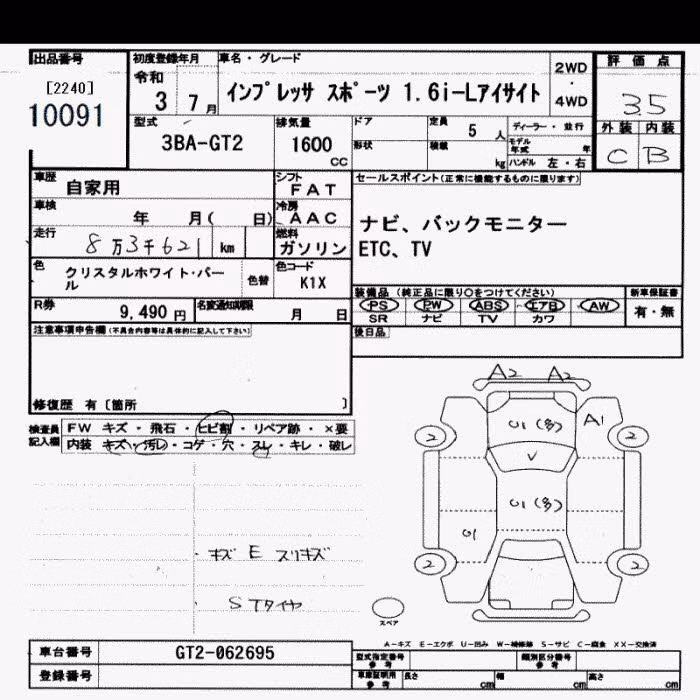 出品番号 初度登録年月 車名・グレード 2WD・4WD 評価点
[2240]
10091
令和 3 7月
インプレッサ スポーツ 1.6i-Lアイサイト
3.5
型式 3BA-GT2
排気量 1600 CC
ドア 定員 5人 ディーラー・並行
形状 積載 kg モデル年式 年
ハンドル 左・右
外装 内装
C B
車歴 自家用
シフト FAT
セールスポイント(正常に機能するものに限ります)
車検 年 月( 日)
冷房 AAC
ナビ、バックモニター
走行 8万3千621 km
燃料 ガソリン
ETC、TV
色 クリスタルホワイト・パール
色替
色コード K1X
装備品 (純正品に限り○をつけてください) 新車保証書
PS PW ABS エアB AW 有・無
SR ナビ TV カワ
R券 9,490円
名変通知期限 月 日
後日品
注意事項申告欄(不具合内容等は具体的に記入して下さい)
修復歴 有〔箇所 〕
検査員記入欄
FW キズ・飛石・ヒビ割・リペア跡・×要
内装 キズ・汚レ・コゲ・穴・スレ・キレ・破レ
A2 A2
U1(多) A1
2 2
V
U1(多)
U1
2 2
・キズ E スリキズ
・S Tタイヤ
スペア
A-キズ E-エクボ U-凹み W-補修跡 S-サビ C-腐食 XX-交換済
車台番号 GT2-062695
登録番号
型式指定番号 参考 類別区分番号 参考
車庫証明用 参考 長さ cm 幅 cm 高さ cm